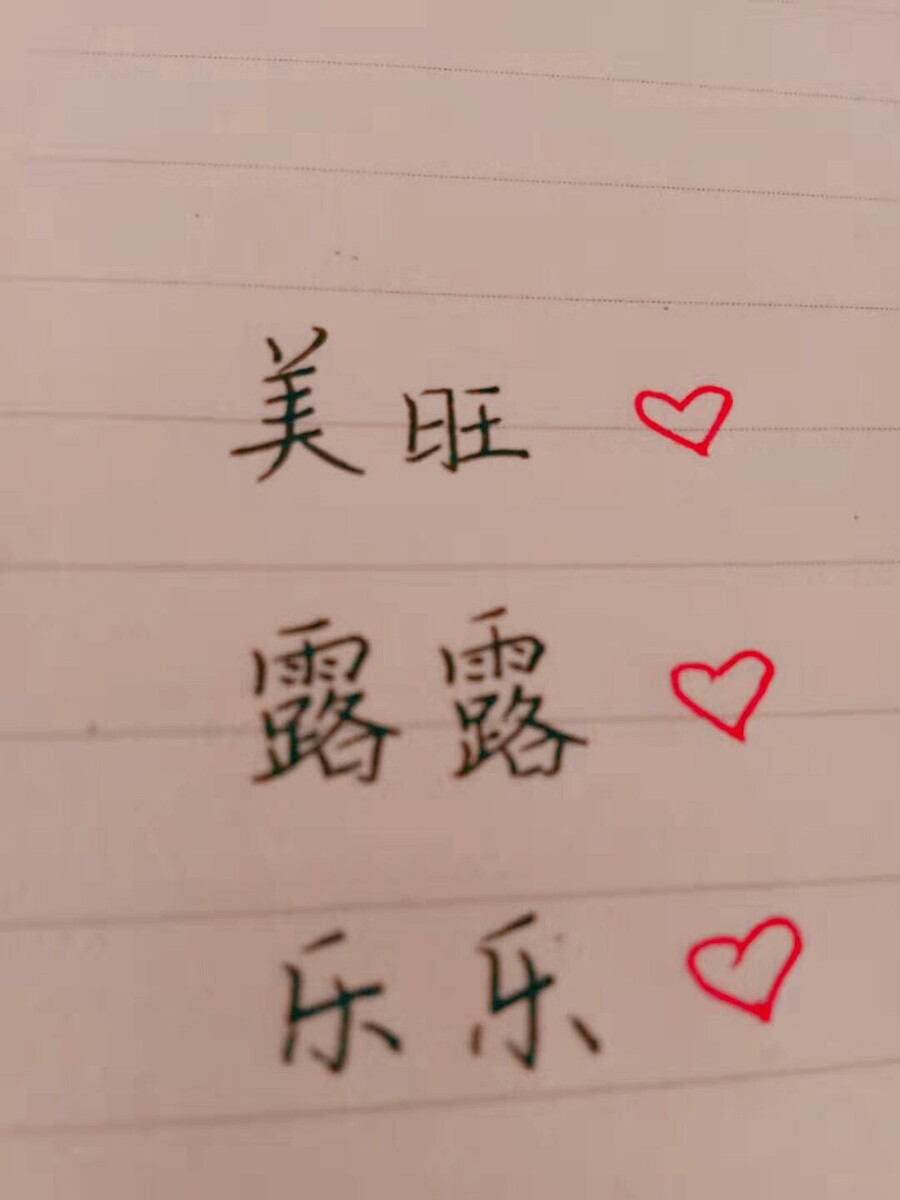 美旺
露露
乐乐